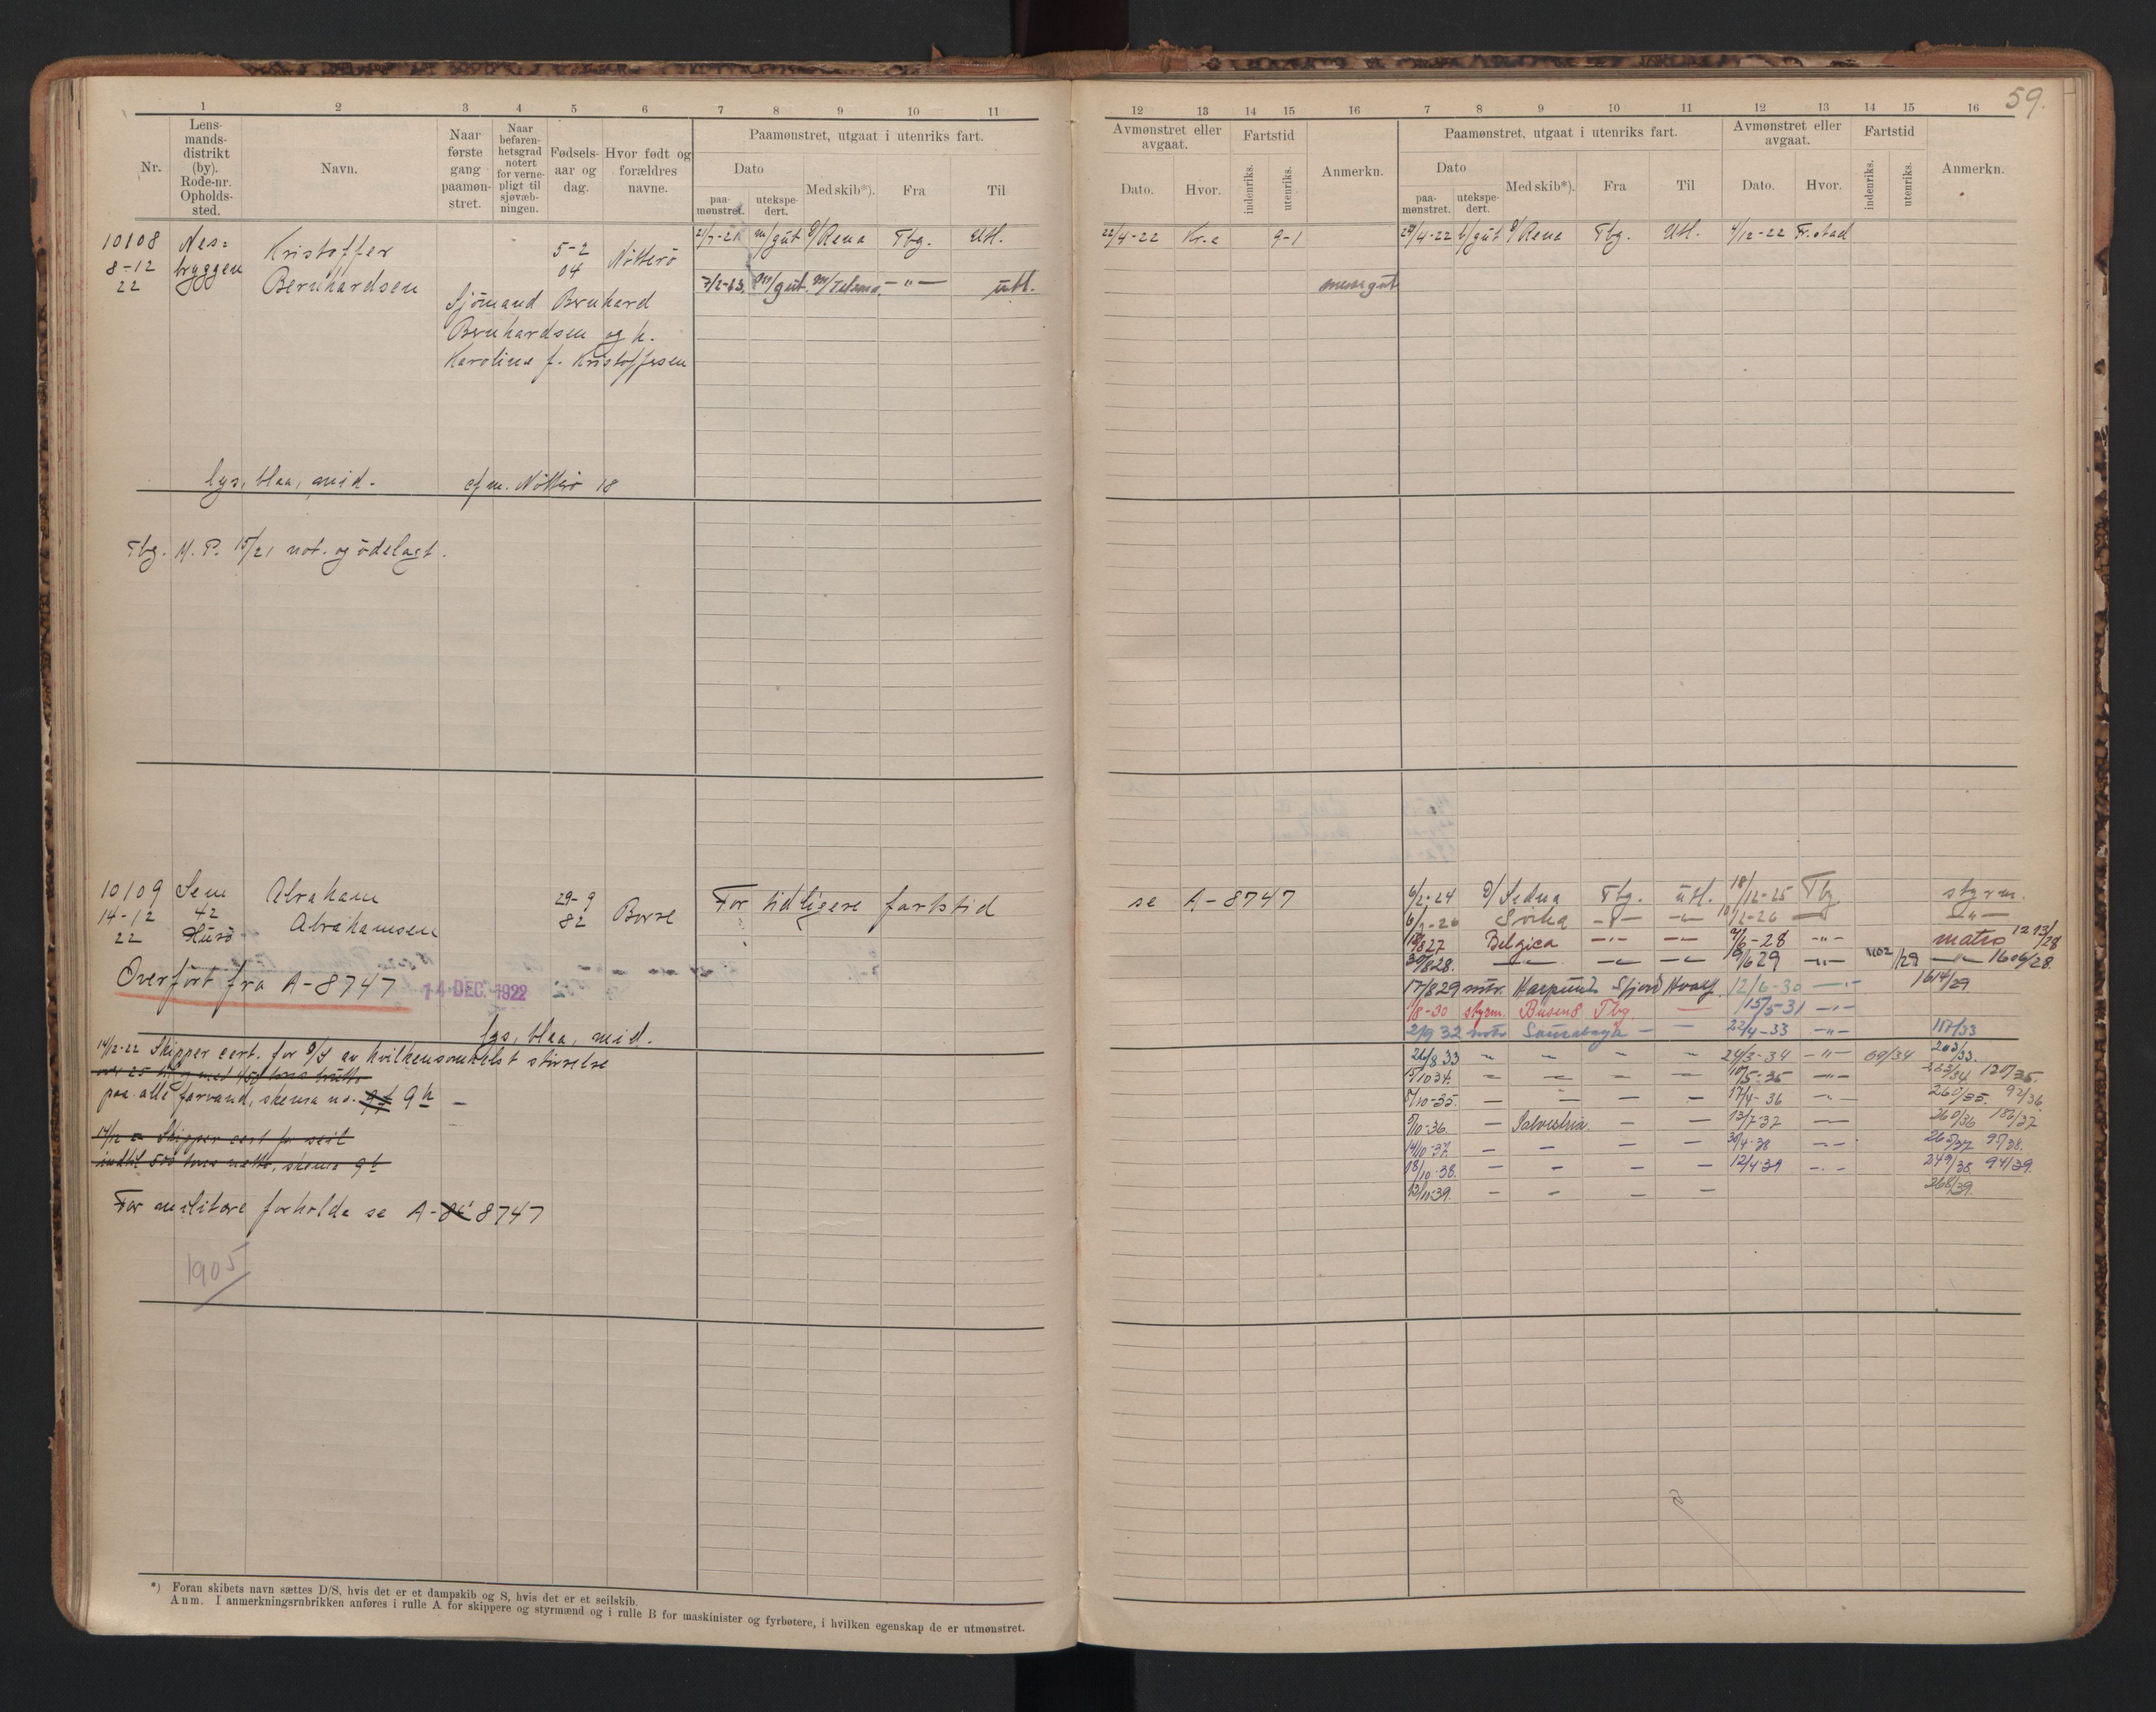 59.
1 2 3 4 5 6 7 8 9 10 11
Nr.
Lens-
mands-
distrikt
(by).
Rode-nr.
Opholds-
sted.
Navn.
Naar
første
gang
paamøn-
stret.
Naar
befaren-
hetsgrad
notert
for verne-
pligt til
sjøvæb-
ningen.
Fødsels-
aar og
dag.
Hvor født og
forældres
navne.
Paamønstret, utgaat i utenriks fart.
Dato
paa-
mønstret.
utekspe-
dert.
Med skib*).
Fra
Til
10108
8-12
22
Nes=
bryggen
Kristoffer
Bernhardsen
5-2
04
Nötterö
Sjömand Bernhard
Bernhardsen og h.
Karoline f. Kristoffersen
2/7-21 m/gut D/Rena Tbg. Utl.
7/2-23. m/gut. M/Telma. -"- Utl.
lys, blaa, mid. efm. Nötterö 18
Tbg. M. P. 15/21 not. og ödelagt.
10109
14-12
22
Sem
42
Husö
Abraham
Abrahamsen
29-9
82
Borre
For tidligere fartstid
Overfört fra A-8747
14 DEC. 1922
lys, blaa, mid.
14/12-22 Skipper cert. for D/S av hvilkensomhelst störrelse
paa alle farvand, skema no. 9h
14/12 - Skipper cert for seil
indtil 500 tons netto, skema 9b
For militære forholde se A-8747
1905
*) Foran skibets navn sættes D/S, hvis det er et dampskib og S, hvis det er et seilskib.
Anm. I anmerkningsrubrikken anføres i rulle A for skippere og styrmænd og i rulle B for maskinister og fyrbøtere, i hvilken egenskap de er utmønstret.
12 13 14 15 16 7 8 9 10 11 12 13 14 15 16
Avmønstret eller
avgaat.
Dato.
Hvor.
Fartstid
indenriks.
utenriks.
Anmerkn.
Paamønstret, utgaat i utenriks fart.
Dato
paa-
mønstret.
utekspe-
dert.
Med skib*).
Fra
Til
Avmønstret eller
avgaat.
Dato.
Hvor.
Fartstid
indenriks.
utenriks.
Anmerkn.
22/4-22 Kr.a 9-1 29/4-22 b/gut D/Rena Tbg. Utl. 4/12-22 Fr.stad
messegut
se A-8747 6/2-24 D/Sedna Tbg. Utl. 18/12-25 Tbg. styrm.
Belgica -"- -"- 7/6-28 -"- matros 1213/28
30/8 28. -"- -"- -"- 10/6 29 -"- 1102/29 -"- 1606/28.
17/8 29 mtr. 12/6-30 -"- 1614/29
1/8-30 styrm. Busen 8 Tbg. - 15/5-31 -"-
2/9 32 matr - - 22/4-33 -"- 157/33
26/8 33 - - - - 24/3-34 -"- 69/34 203/33.
15/10 34. - - - - 10/5-35 -"- 263/34 120/35.
5/10-35. - - - - 17/4-36 -"- 260/35. 92/36
5/10-36. - Salvestria. - - 13/7-37 - 260/36 186/37
14/10-37. - - - - 30/4-38 - 265/37 97/38.
18/10-38. - - - - 12/4-39 - 249/38. 94/39.
13/10-39. - - - - 268/39.